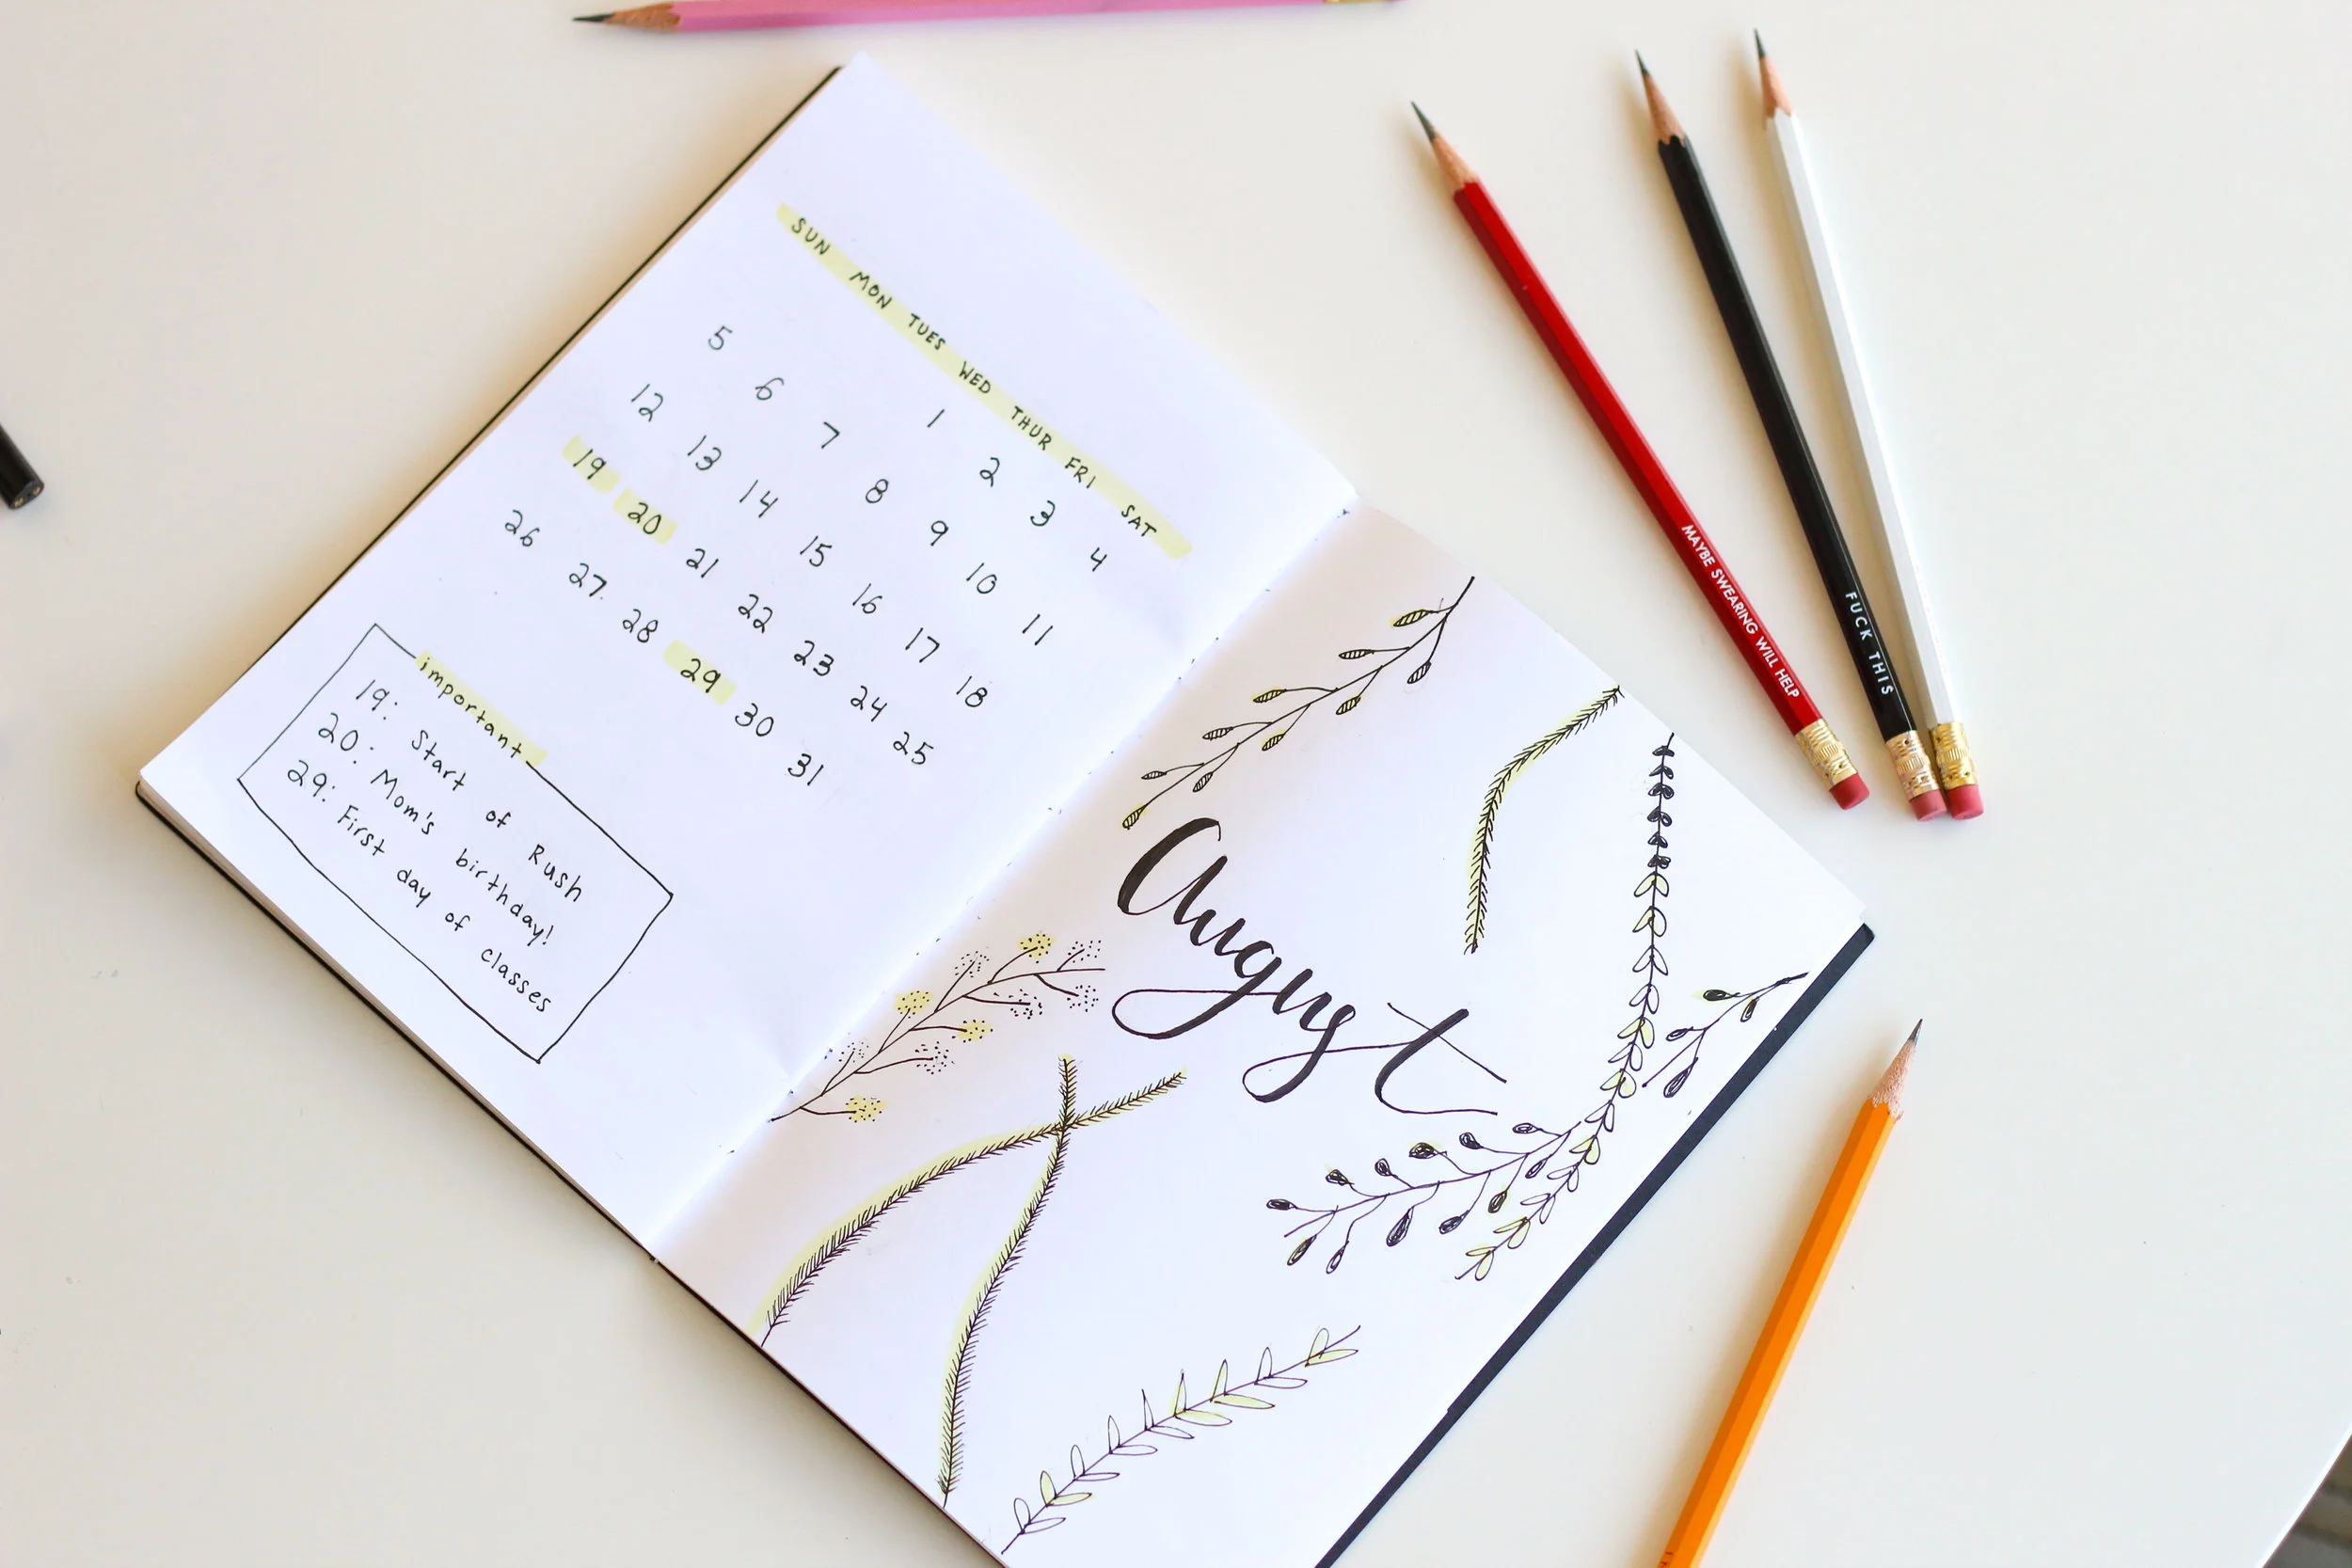 SUN MON TUES WED THUR FRI SAT
1 2 3 4
5 6 7 8 9 10 11
12 13 14 15 16 17 18
19 20 21 22 23 24 25
26 27 28 29 30 31
important
19: Start of Rush
20: Mom's birthday!
29: First day of classes
August
MAYBE SWEARING WILL HELP
FUCK THIS